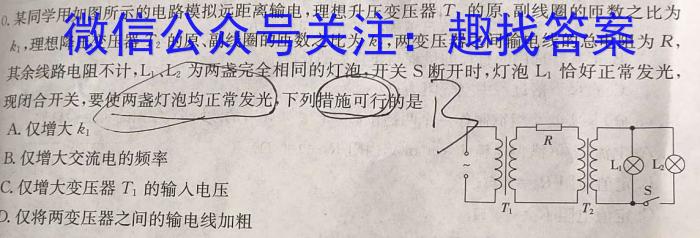 0.某同学用如图所示的电路模拟远距离输电,理想升压变压器 T₁ 的原、副线圈的匝数之比为
k₁,理想降压变压器 T₂ 的原、副线圈的匝数之比为 k₂,两变压器之间输电线的总电阻为 R,
微信公众号关注：趣找答案
其余线路电阻不计,L₁、L₂ 为两盏完全相同的灯泡,开关 S 断开时,灯泡 L₁ 恰好正常发光,
现闭合开关,要使两盏灯泡均正常发光,下列措施可行的是
A. 仅增大 k₁
B. 仅增大交流电的频率
C. 仅增大变压器 T₁ 的输入电压
D. 仅将两变压器之间的输电线加粗
B
~
R
L₁
L₂
S
T₁
T₂